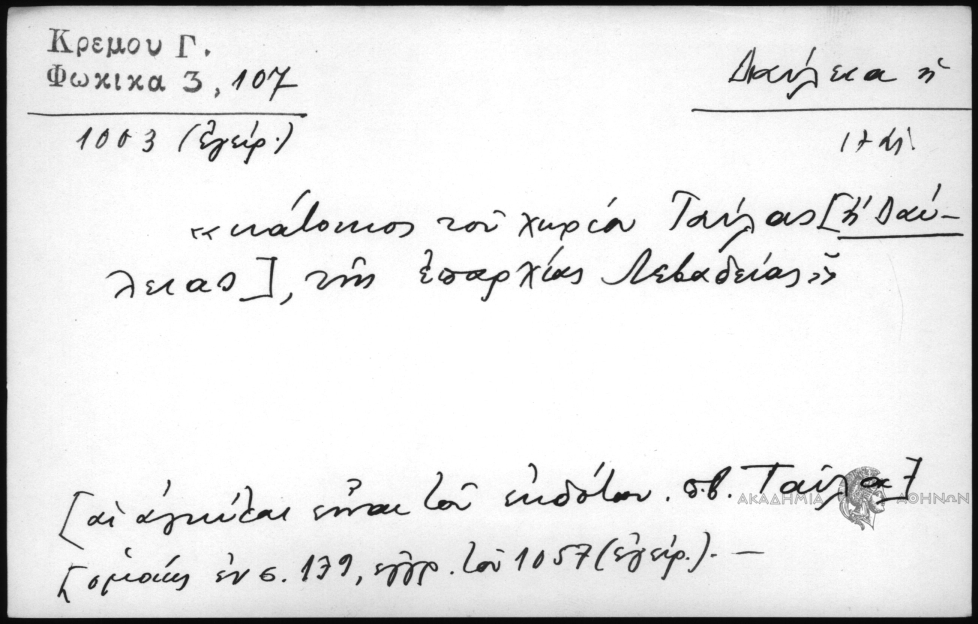 Κρεμου Γ.
Φωκικα 3, 107
Δαύλεια ἡ
1003 (ἐγείρ.)
«κάτοικος τοῦ χωρίου Ταύλας [ἡ Δαύ-
λειας], τῆς ἐπαρχίας Λεβαδείας»
[αἱ ἀγκύλαι εἶναι τοῦ ἐκδότου. π.β. Ταύλα]
[ὁμοίως ἐν σ. 179, ἔγγρ. τοῦ 1057 (ἐγείρ.). —
ΑΚΑΔΗΜΙΑ ΑΘΗΝΩΝ